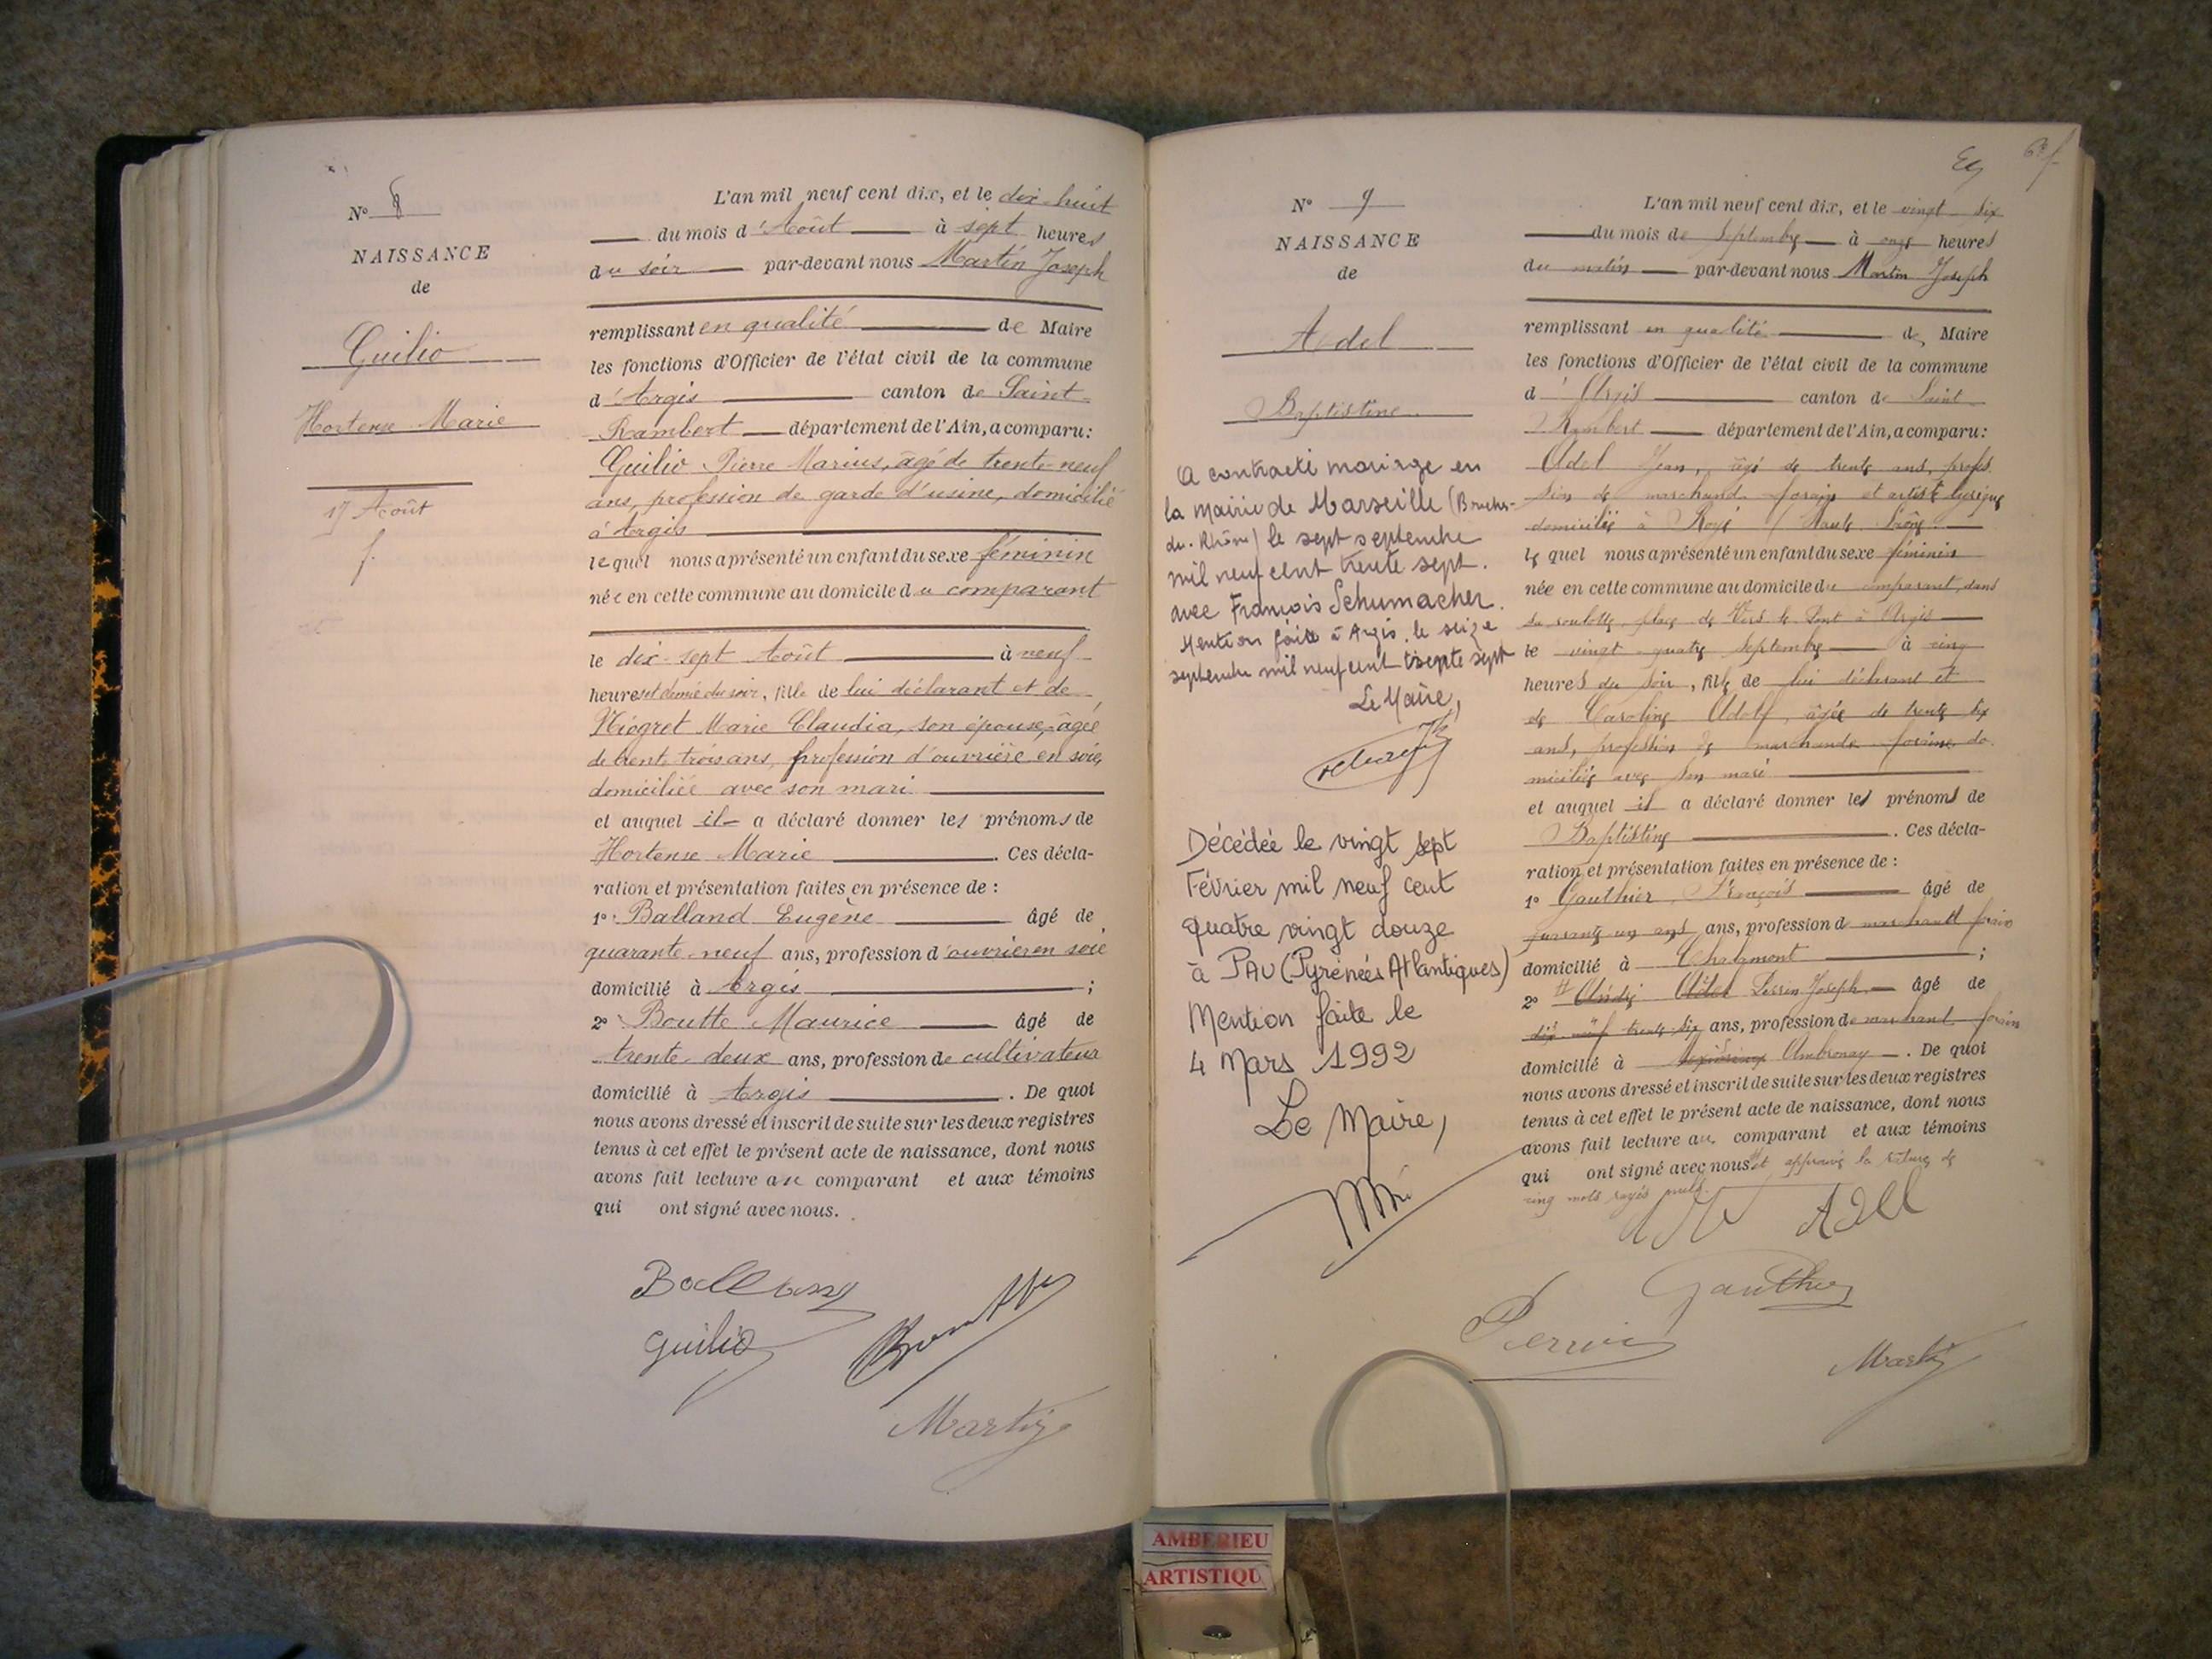 N° 8
NAISSANCE
de
Guilio
Hortense Marie
17 Août
f.
L'an mil neuf cent dix, et le dix-huit
du mois d'Août à sept heures
du soir par-devant nous Martin Joseph
remplissant en qualité de Maire
les fonctions d'Officier de l'état civil de la commune
d'Argis canton de Saint-
Rambert département de l'Ain, a comparu:
Guilio Pierre Marius, âgé de trente-neuf
ans, profession de garde d'usine, domicilié
à Argis
lequel nous a présenté un enfant du sexe féminin
née en cette commune au domicile du comparant
le dix-sept Août à neuf
heures et demie du soir, fille de lui déclarant et de
Niogret Marie Claudia, son épouse, âgée
de trente trois ans, profession d'ouvrière en soie,
domiciliée avec son mari
et auquel il a déclaré donner les prénoms de
Hortense Marie. Ces décla-
ration et présentation faites en présence de :
1° Balland Eugène âgé de
quarante-neuf ans, profession d'ouvrier en soie
domicilié à Argis ;
2° Boutte Maurice âgé de
trente-deux ans, profession de cultivateur
domicilié à Argis. De quoi
nous avons dressé et inscrit de suite sur les deux registres
tenus à cet effet le présent acte de naissance, dont nous
avons fait lecture au comparant et aux témoins
qui ont signé avec nous.
Balland
Guilio
Boutte
Martin
N° 9
NAISSANCE
de
Adel
Baptistine
A contracté mariage en
la Mairie de Marseille (Bouches-
du-Rhône) le sept septembre
mil neuf cent trente sept.
avec François Schumacher.
Mention faite à Argis, le seize
septembre mil neuf cent trente sept
Le Maire,
Décédée le vingt sept
Février mil neuf cent
quatre vingt douze
à PAU (Pyrénées Atlantiques)
Mention faite le
4 Mars 1992
Le Maire,
L'an mil neuf cent dix, et le vingt six
du mois de Septembre à onze heures
du matin par-devant nous Martin Joseph
remplissant en qualité de Maire
les fonctions d'Officier de l'état civil de la commune
d'Argis canton de Saint-
Rambert département de l'Ain, a comparu:
Adel Jean, âgé de trente ans, profes
sion de marchand forain et artiste lyrique
domicilié à Royé (Haute Saône)
lequel nous a présenté un enfant du sexe féminin
née en cette commune au domicile du comparant, dans
sa roulotte place de Vers le Pont à Argis
le vingt-quatre Septembre à cinq
heures du soir, fille de lui déclarant et
de Caroline Adolf, âgée de trente six
ans, profession de marchande foraine do
miciliée avec son mari
et auquel il a déclaré donner les prénoms de
Baptistine. Ces décla-
ration et présentation faites en présence de :
1° Gauthier François âgé de
quarante un ans ans, profession de marchand forain
domicilié à Chalamont ;
2° Adel Joseph âgé de
dix-neuf trente-six ans, profession de marchand forain
domicilié à Ambronay. De quoi
nous avons dressé et inscrit de suite sur les deux registres
tenus à cet effet le présent acte de naissance, dont nous
avons fait lecture au comparant et aux témoins
qui ont signé avec nous et approuvé la rature de
cinq mots rayés nuls.
Adel
Gauthier
Perrin
Martin
AMBERIEU
ARTISTIQU